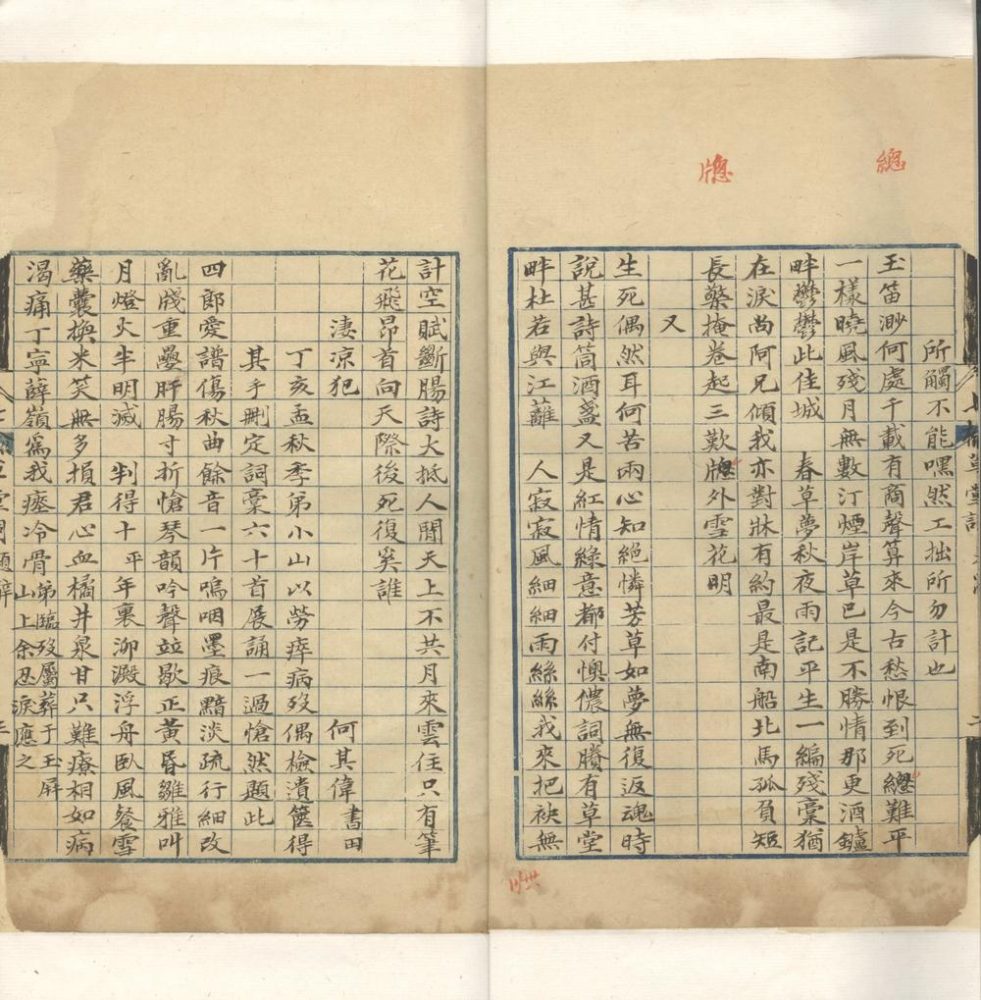 總
牕
所觸不能嘿然工拙所勿計也
玉笛渺何處千載有商聲算來今古愁恨到死總難平
一樣曉風殘月無數汀煙岸草已是不勝情那更酒鑪
畔鬱鬱此佳城 春草夢秋夜雨記平生一編殘稾猶
在淚尚阿兄傾我亦對牀有約最是南船北馬孤負短
長檠掩卷起三歎牕外雪花明
又
生死偶然耳何苦兩心知絕憐芳草如夢無復返魂時
說甚詩筒酒盞又是紅情綠意都付懊儂詞賸有草堂
畔杜若與江蘺 人寂寂風細細雨絲絲我來把袂無
計空賦斷腸詩大抵人間天上不共月來雲住只有筆
花飛昂首向天際後死復奚誰
淒凉犯 何其偉 書田
丁亥孟秋季弟小山以勞瘁病歿偶檢遺篋得
其手刪定詞稾六十首展誦一過愴然題此
四郎愛譜傷秋曲餘音一片嗚咽墨痕黯淡疏行細改
亂牋重疊肝腸寸折愴琴韻吟聲竝歇正黃昏雛雅叫
月燈火半明滅 判得十平年裏泖澱浮舟臥風餐雪
藥囊換米笑無多損君心血橘井泉甘只難療相如病
渴痛丁寧薛嶺爲我瘞冷骨弟臨歿屬葬于玉屏山上余忍淚應之